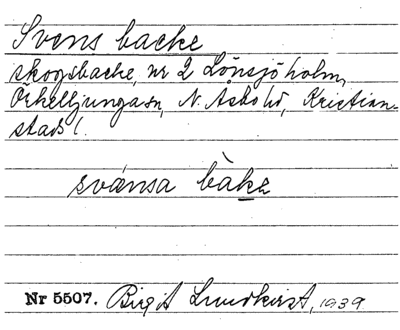 Svens backe
skogsbacke, nr 2 Lönsjöholm,
Örkelljungasn, N. Åsbo hd, Kristian-
stads l.
svánsa bàkə
Nr 5507. Birgit Lundkvist, 1939